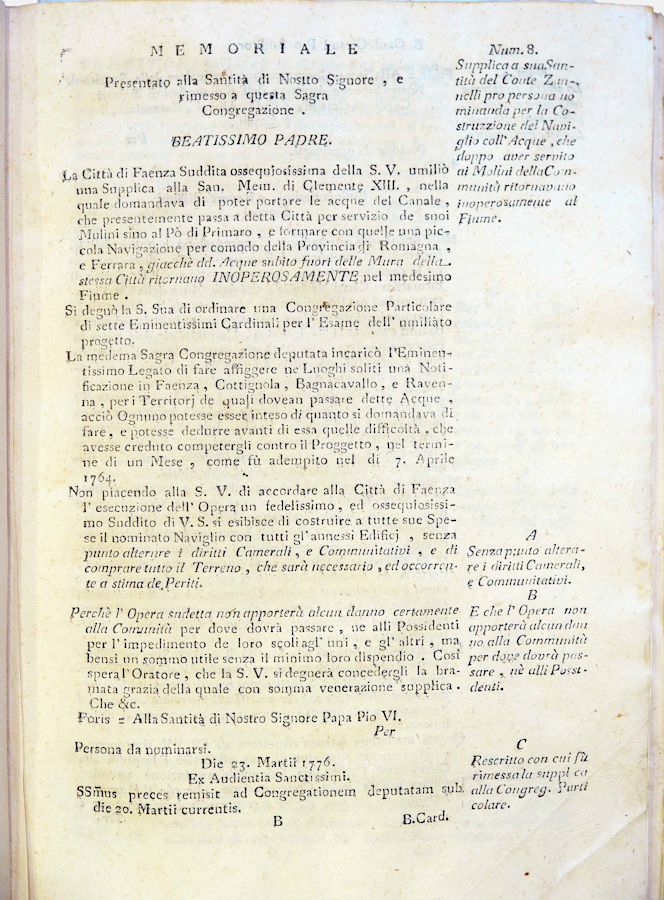 MEMORIALE
Presentato alla Santità di Nostro Signore , e
rimesso a questa Sagra
Congregazione .
BEATISSIMO PADRE.
La Città di Faenza Suddita ossequiosissima della S. V. umiliò
una Supplica alla San. Mem. di Clemente XIII. , nella
quale domandava di poter portare le acque del Canale ,
che presentemente passa a detta Città per servizio de suoi
Mulini sino al Pò di Primaro , e formare con quelle una pic-
cola Navigazione per comodo della Provincia di Romagna ,
e Ferrara , giacchè dd. Acque subito fuori delle Mura della
stessa Città ritornano INOPEROSAMENTE nel medesimo
Fiume .
Si degnò la S. Sua di ordinare una Congregazione Particolare
di sette Eminentissimi Cardinali per l' Esame dell' umiliato
progetto.
La medema Sagra Congregazione deputata incaricò l'Eminen-
tissimo Legato di fare affiggere ne Luoghi soliti una Noti-
ficazione in Faenza , Cottignola , Bagnacavallo , e Raven-
na , per i Territorj de quali dovean passare dette Acque ,
acciò Ognuno potesse esser inteso di quanto si domandava di
fare , e potesse dedurre avanti di essa quelle difficoltà , che
avesse creduto competergli contro il Proggetto , nel termi-
ne di un Mese , come fù adempito nel di 7. Aprile
1764.
Non piacendo alla S. V. di accordare alla Città di Faenza
l' esecuzione dell' Opera un fedelissimo , ed ossequiosissi-
mo Suddito di V. S. si esibisce di costruire a tutte sue Spe-
se il nominato Naviglio con tutti gl'annessi Edificj , senza
punto alterare i diritti Camerali , e Communitativi , e di
comprare tutto il Terreno , che sarà necessario , ed occorren-
te a stima de Periti.
Perchè l' Opera sudetta non apporterà alcun danno certamente
alla Comunità per dove dovrà passare , ne alli Possidenti
per l'impedimento de loro scoli agl' uni , e gl' altri , ma
bensì un sommo utile senza il minimo loro dispendio . Così
spera l'Oratore , che la S. V. si degnerà concedergli la bra-
mata grazia della quale con somma venerazione supplica .
Che &c.
Foris = Alla Santità di Nostro Signore Papa Pio VI.
Per
Persona da nominarsi.
Die 23. Martii 1776.
Ex Audientia Sanctissimi.
SSm̃us preces remisit ad Congregationem deputatam sub
die 20. Martii currentis.
B
B.Card.
Num. 8.
Supplica a sua San-
tità del Conte Zan-
nelli pro persona no
minanda per la Co-
struzzione del Navi-
glio coll' Acque , che
doppo aver servito
ai Molini della Com-
munità ritornavano
inoperosamente al
Fiume.
A
Senza punto altera-
re i diritti Camerali,
e Communitativi.
B
E che l' Opera non
apporterà alcun dan
no alla Communità
per dove dovrà pas-
sare , nè alli Possi-
denti.
C
Rescritto con cui fù
rimessa la suppl ca
alla Congreg. Parti
colare.